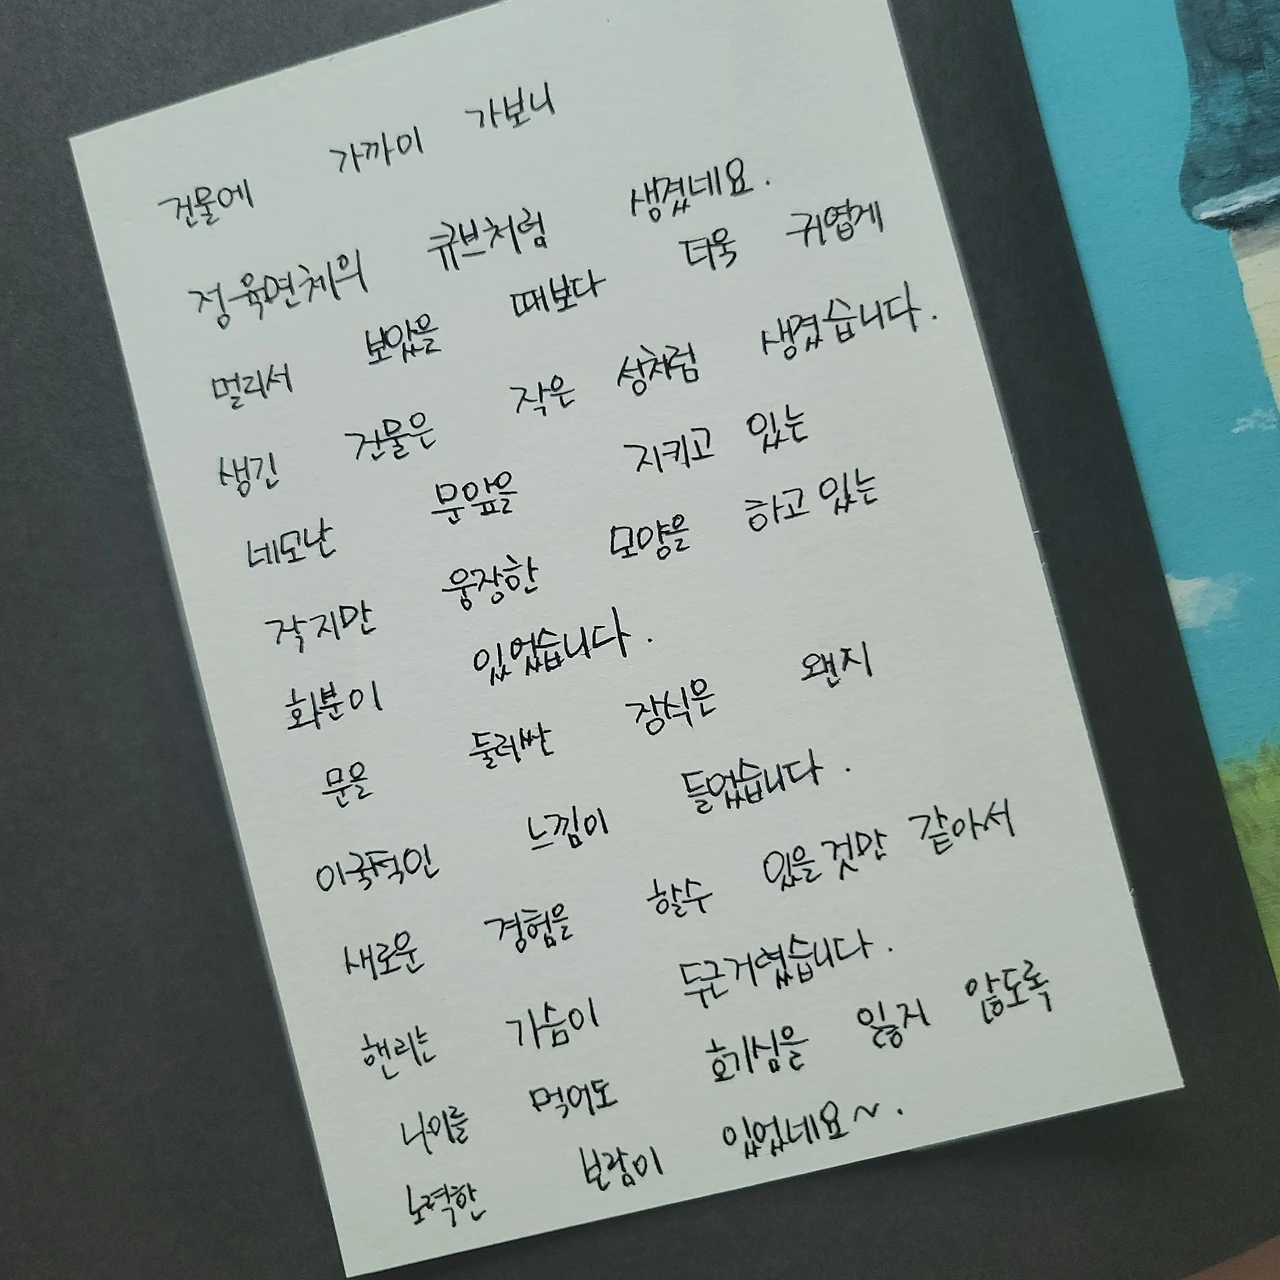 건물에 가까이 가보니
정육면체의 큐브처럼 생겼네요.
멀리서 보았을 때보다 더욱 귀엽게
생긴 건물은 작은 성처럼 생겼습니다.
네모난 문앞을 지키고 있는
작지만 웅장한 모양을 하고 있는
화분이 있었습니다.
문을 둘러싼 장식은 왠지
이국적인 느낌이 들었습니다.
새로운 경험을 할수 있을것만 같아서
핸리는 가슴이 두근거렸습니다.
나이를 먹어도 호기심을 잃지 않도록
노력한 보람이 있었네요~.